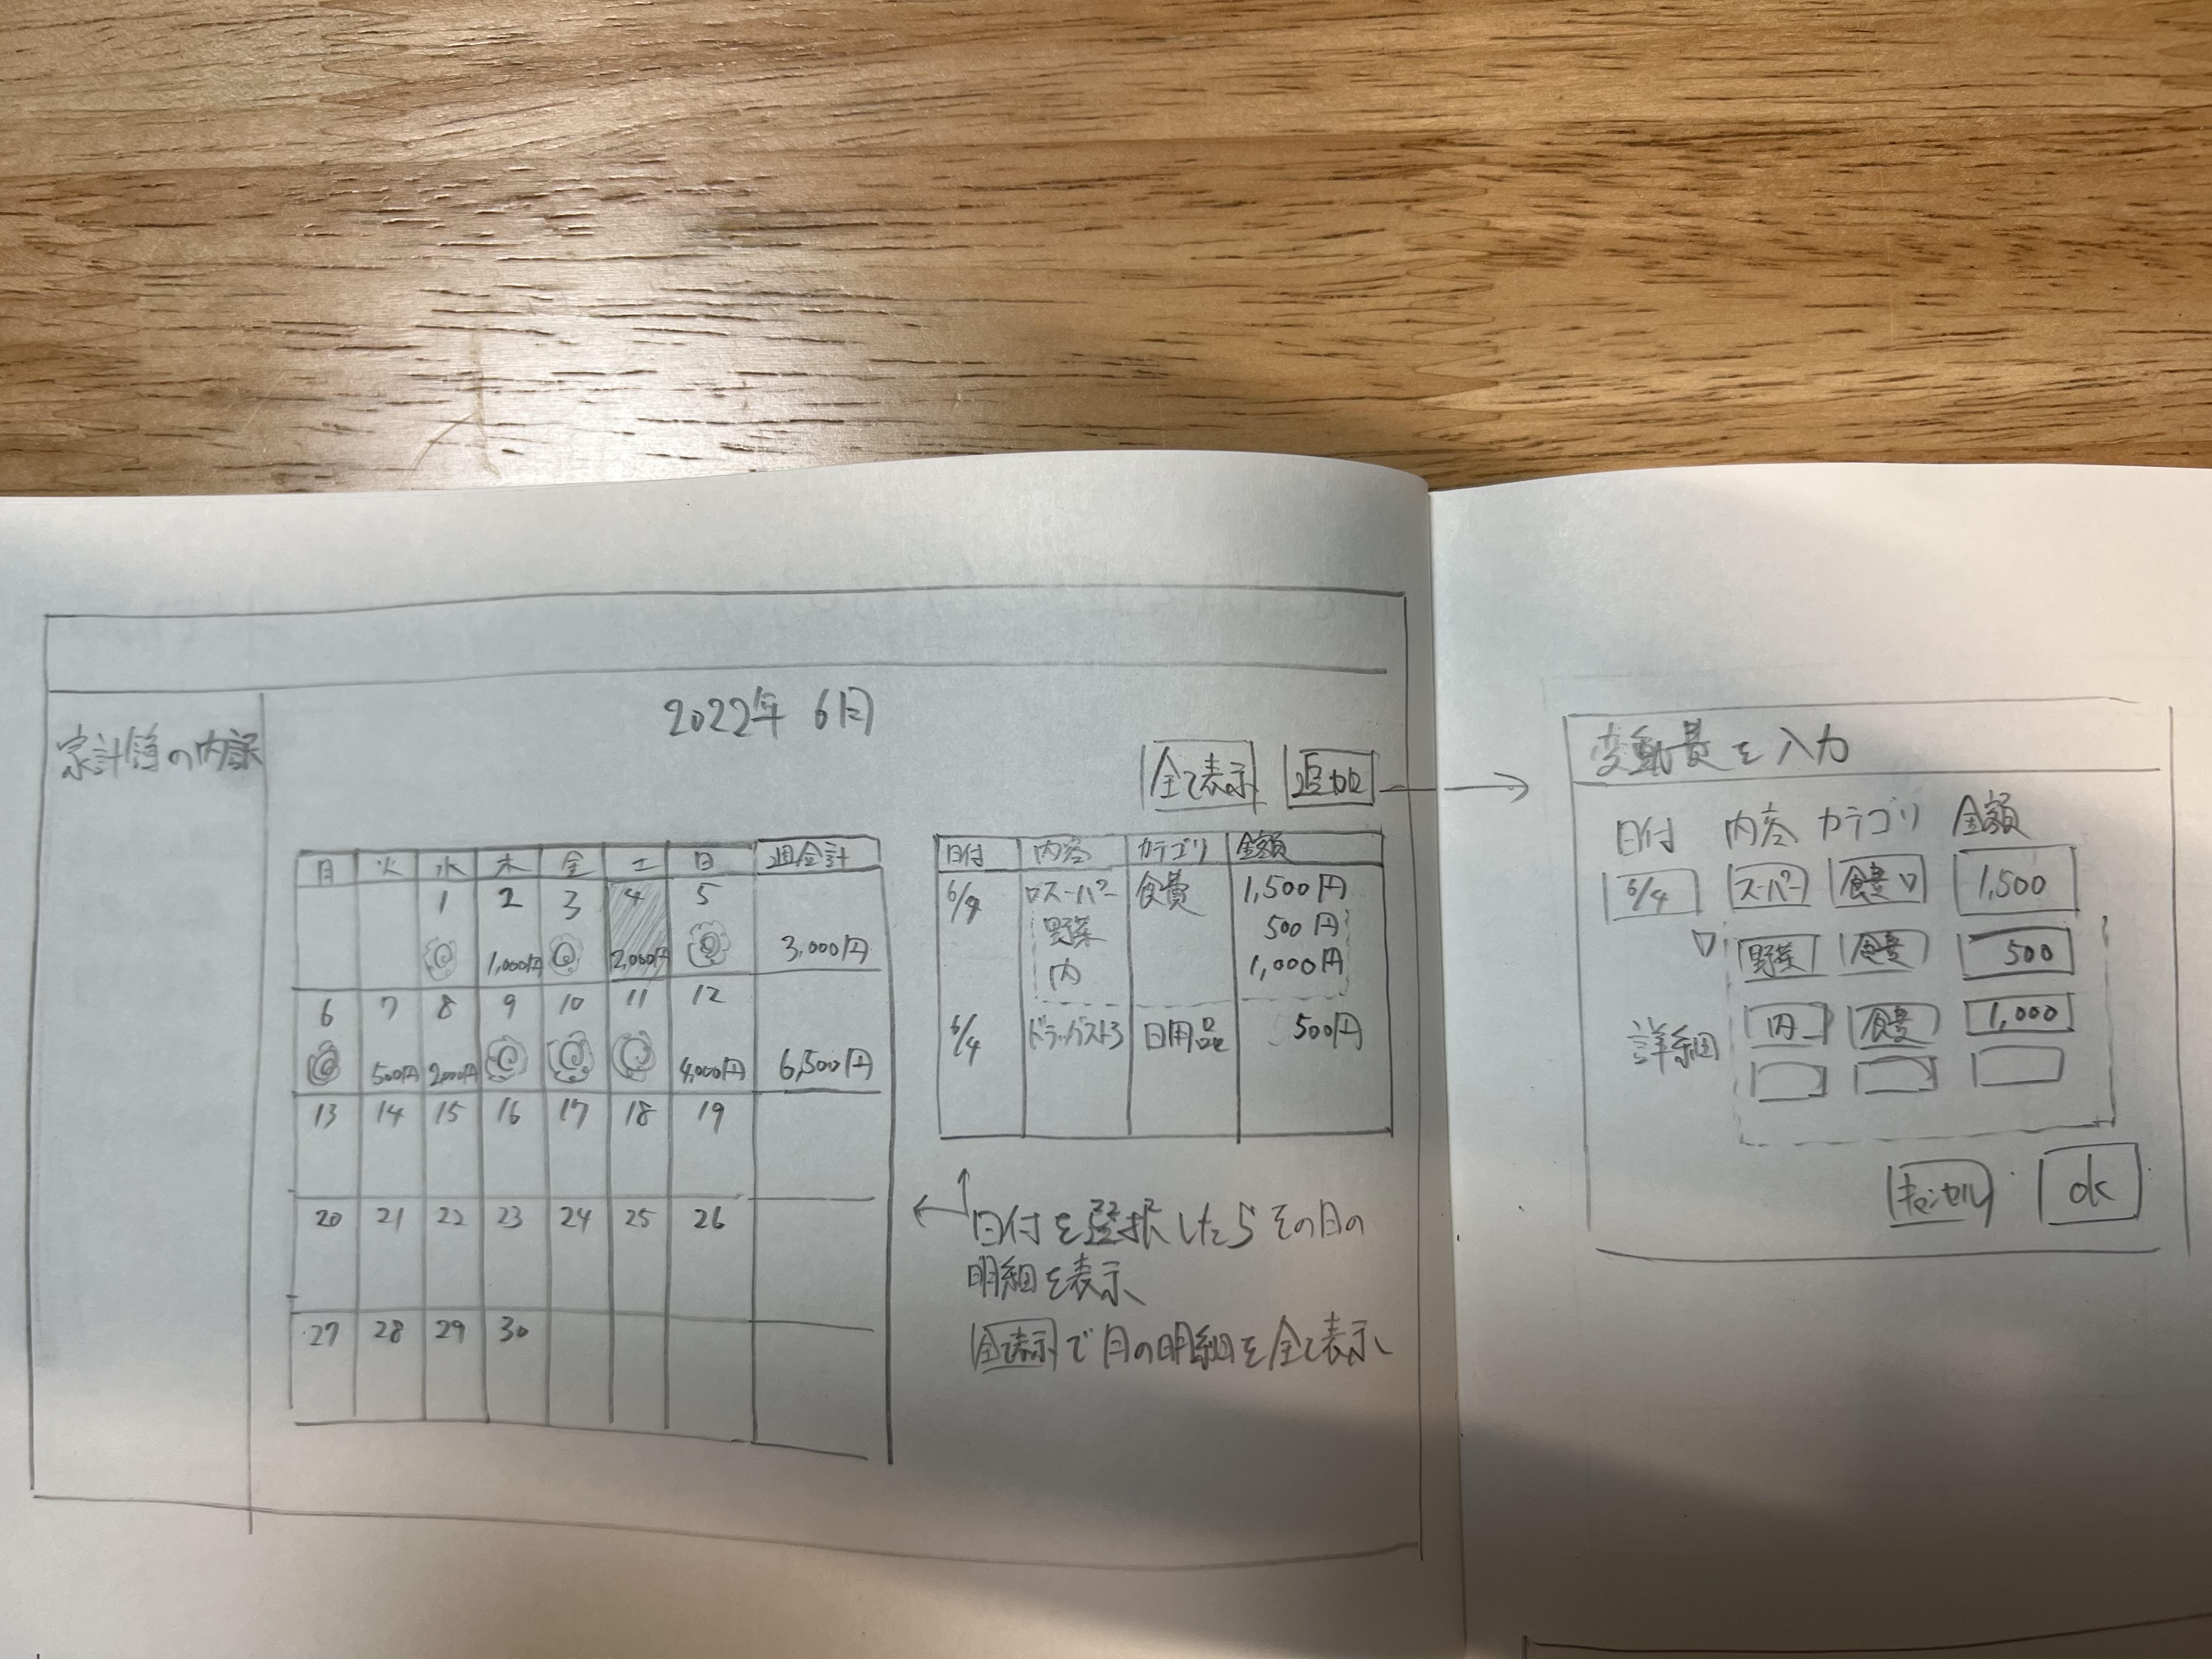 2022年 6月
家計簿の内訳
全て表示 追加
月 火 水 木 金 土 日 週合計
1 2 3 4 5
1,000円 2,000円 3,000円
6 7 8 9 10 11 12
500円 2,000円 4,000円 6,500円
13 14 15 16 17 18 19
20 21 22 23 24 25 26
27 28 29 30
日付 内容 カテゴリ 金額
6/4 スーパー 食費 1,500円
野菜 500円
内 1,000円
6/4 ドラッグスト 日用品 500円
日付を選択したらその日の
明細を表示
全て表示で月の明細を全て表示
変動費を入力
日付 内容 カテゴリ 金額
6/4 スーパー 食費 ▽ 1,500
▽ 野菜 食費 500
詳細 内 食費 1,000
キャンセル ok